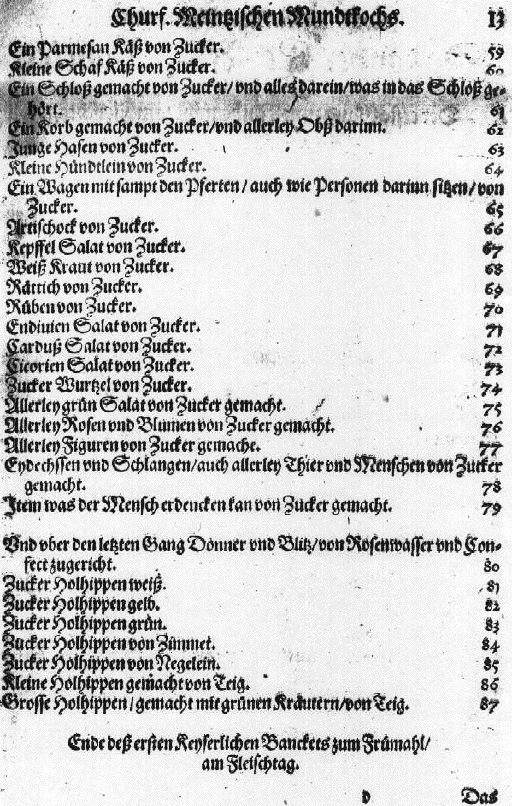 Churf. Meintzischen Mundtkochs. 13
Ein Parmesan Käß von Zucker. 59
Kleine Schaf Käß von Zucker. 60
Ein Schloß gemacht von Zucker/ vnd alles darein/was in das Schloß ge-
hört. 61
Ein Korb gemacht von Zucker/vnd allerley Obß darinn. 62
Junge Hasen von Zucker. 63
Kleine Hündtlein von Zucker. 64
Ein Wagen mit sampt den Pferten/ auch wie Personen darinn sitzen/von
Zucker. 65
Artischock von Zucker. 66
Kepffel Salat von Zucker. 67
Weiß Kraut von Zucker. 68
Rättich von Zucker. 69
Rüben von Zucker. 70
Endiuien Salat von Zucker. 71
Carduß Salat von Zucker. 72
Cicorien Salat von Zucker. 73
Zucker Wurtzel von Zucker. 74
Allerley grün Salat von Zucker gemacht. 75
Allerley Rosen vnd Blumen von Zucker gemacht. 76
Allerley Figuren von Zucker gemacht. 77
Eydechssen vnd Schlangen/auch allerley Thier vnd Menschen von Zucker
gemacht. 78
Item was der Mensch erdencken kan von Zucker gemacht. 79
Vnd vber den letzten Gang Donner vnd Blitz/von Rosenwasser vnd Con-
fect zugericht. 80
Zucker Holhippen weiß. 81
Zucker Holhippen gelb. 82
Zucker Holhippen grün. 83
Zucker Holhippen von Zimmet. 84
Zucker Holhippen von Negelein. 85
Kleine Holhippen gemacht von Teig. 86
Grosse Holhippen/gemacht mit grünen Kräutern/von Teig. 87
Ende deß ersten Keyserlichen Banckets zum Frümahl/
am Fleischtag.
d Das